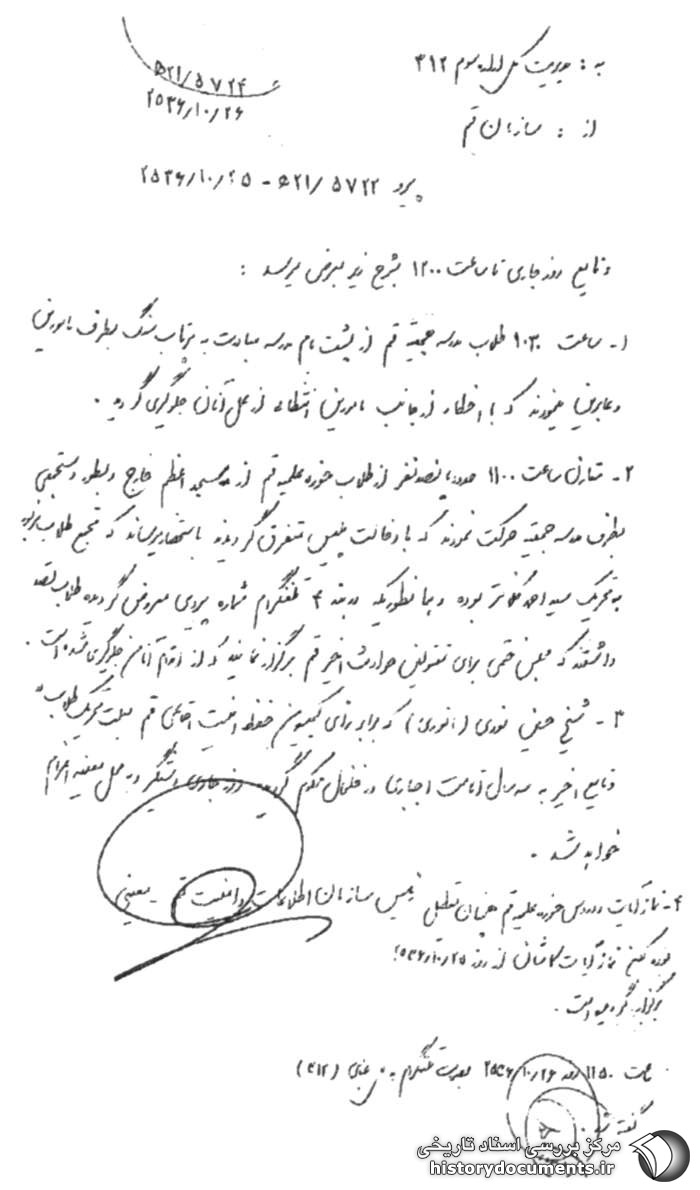 به : مدیریت کل اداره سوم ۳۱۲
۵۲۱/۵۷۲۴
۲۵۳۶/۱۰/۲۶
از : سازمان قم
پیرو ۵۷۲۲/۵۲۱ - ۲۵۳۶/۱۰/۲۵
وقایع روز جاری تا ساعت ۱۲۰۰ بشرح زیر بعرض میرسد :
۱- ساعت ۱۰۳۰ طلاب مدرسه حجتیه قم از پشت بام مدرسه مبادرت به پرتاب سنگ بطرف مامورین
و عابرین نمودند که با اخطار از جانب مامورین انتظامی از عمل آنان جلوگیری گردید .
۲- مقارن ساعت ۱۱۰۰ حدود پانصد نفر از طلاب حوزه علمیه قم از مسجد اعظم خارج و بطور دستجمعی
بطرف مدرسه حجتیه حرکت نمودند که با دخالت پلیس متفرق گردیدند باستحضار میرساند که تجمع طلاب مزبور
به تحریک سید احمد کلانتر بوده و همانطوریکه در بند ۴ تلفنگرام شماره پیروی معروض گردیده طلاب قصد
داشتند که مجلس ختمی برای مقتولین حوادث اخیر قم برگزار نمایند که از اقدام آنان جلوگیری شده است .
۳- شیخ حسین نوری ( انوری ) که برابر رای کمیسیون حفظ امنیت اجتماعی قم بعلت تحریک طلاب در
وقایع اخیر به سه سال اقامت اجباری در خلخال محکوم گردیده روز جاری دستگیر و به محل معینه اعزام
خواهد شد .
۴- نماز آیات و دروس حوزه علمیه قم همچنان تعطیل
رئیس سازمان اطلاعات و امنیت قم - معینی
بوده لکن نماز آیات کاشانی از روز ۲۵۳۶/۱۰/۲۵
برگزار گردیده است .
ساعت ۱۱۵۰ روز ۲۵۳۶/۱۰/۲۶ بصورت تلفنگرام به (۳۱۲)
گفته شد .
مرکز بررسی اسناد تاریخی
historydocuments.ir